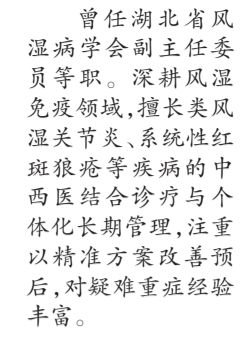 曾任湖北省风
湿病学会副主任委
员等职。深耕风湿
免疫领域,擅长类风
湿关节炎、系统性红
斑狼疮等疾病的中
西医结合诊疗与个
体化长期管理,注重
以精准方案改善预
后,对疑难重症经验
丰富。